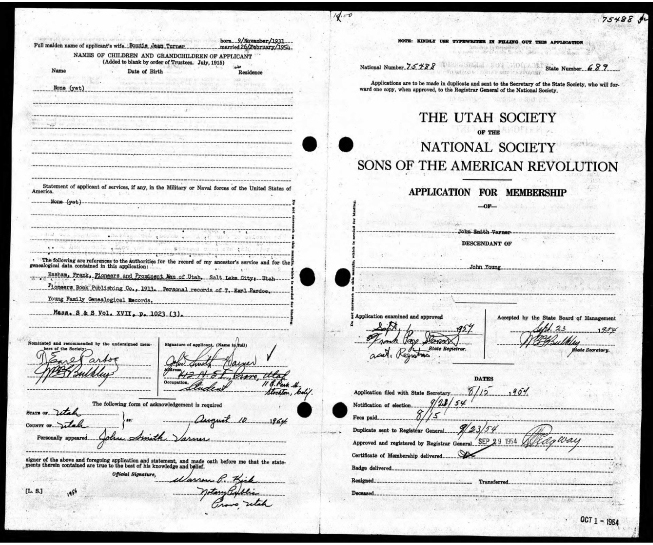 Full maiden name of applicant's wife. Bonnie Jean Turner born 9/November/1931
married 26/February/1954
NAMES OF CHILDREN AND GRANDCHILDREN OF APPLICANT
(Added to blank by order of Trustees. July, 1915)
Name Date of Birth Residence
None (yet)
Statement of applicant of services, if any, in the Military or Naval forces of the United States of
America.
None (yet)
The following are references to the Authorities for the record of my ancestor's service and for the
genealogical data contained in this application:
Esshom, Frank, Pioneers and Prominent Men of Utah, Salt Lake City, Utah
Pioneers Book Publishing Co., 1913. Personal records of T. Earl Pardoe.
Young Family Genealogical Records.
Mass. S & S Vol. XVII, p. 1023 (3).
Nominated and recommended by the undersigned members of the Society.
T. Earl Pardoe
Signature of applicant. (Name in full)
John Smith Varner
Address
Provo, Utah
Occupation.
Student
Stockton, Calif.
The following form of acknowledgment is required
STATE OF Utah
COUNTY OF Utah
August 10 1954
Personally appeared John Smith Varner
signer of the above and foregoing application and statement, and made oath before me that the statements therein contained are true to the best of his knowledge and belief.
Official Signature,
Warren P. Kirk
Notary Public
Provo, Utah
[L. S.]
75488
NOTE: KINDLY USE TYPEWRITER IN FILLING OUT THIS APPLICATION
National Number 75488 State Number 689
Applications are to be made in duplicate and sent to the Secretary of the State Society, who will forward one copy, when approved, to the Registrar General of the National Society.
THE UTAH SOCIETY
OF THE
NATIONAL SOCIETY
SONS OF THE AMERICAN REVOLUTION
APPLICATION FOR MEMBERSHIP
—OF—
John Smith Varner
DESCENDANT OF
John Young
Application examined and approved
Sept. 1954
State Registrar.
Accepted by the State Board of Management
Sept. 23 1954
State Secretary.
DATES
Application filed with State Secretary. 8/15 1954
Notification of election 9/23/54
Fees paid 8/15
Duplicate sent to Registrar General 9/23/54
Approved and registered by Registrar General SEP 29 1954 Ridgway
Certificate of Membership delivered
Badge delivered
Resigned Transferred
Deceased
OCT 1 - 1954